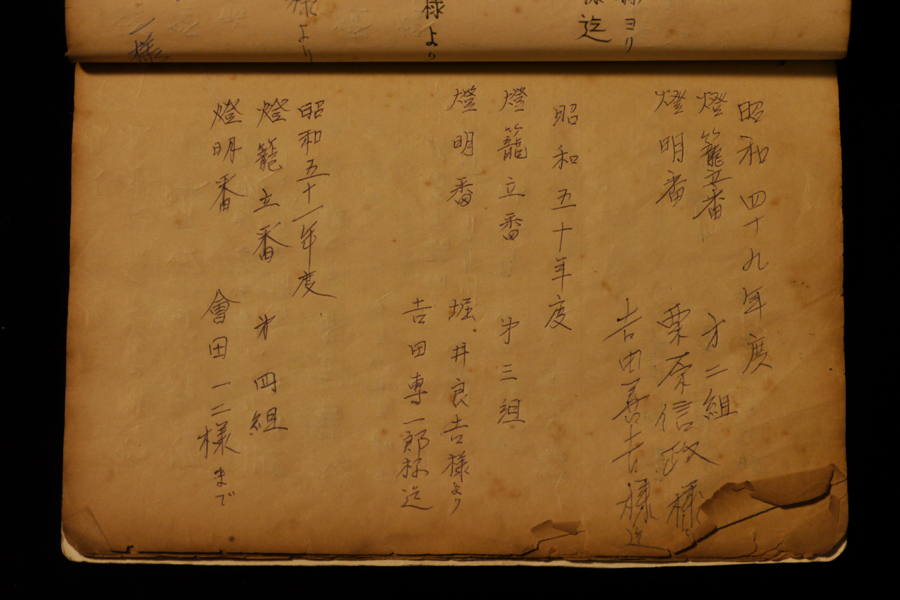 様ヨリ
迄
様より
様より
二様
昭和四十九年度
燈籠立番 第二組
燈明番 栗原信政様
吉田喜吉様迄
昭和五十年度
燈籠立番 第三組
燈明番 堀井良吉様より
吉田専一郎様迄
昭和五十一年度
燈籠立番 第四組
燈明番 會田一二様まで